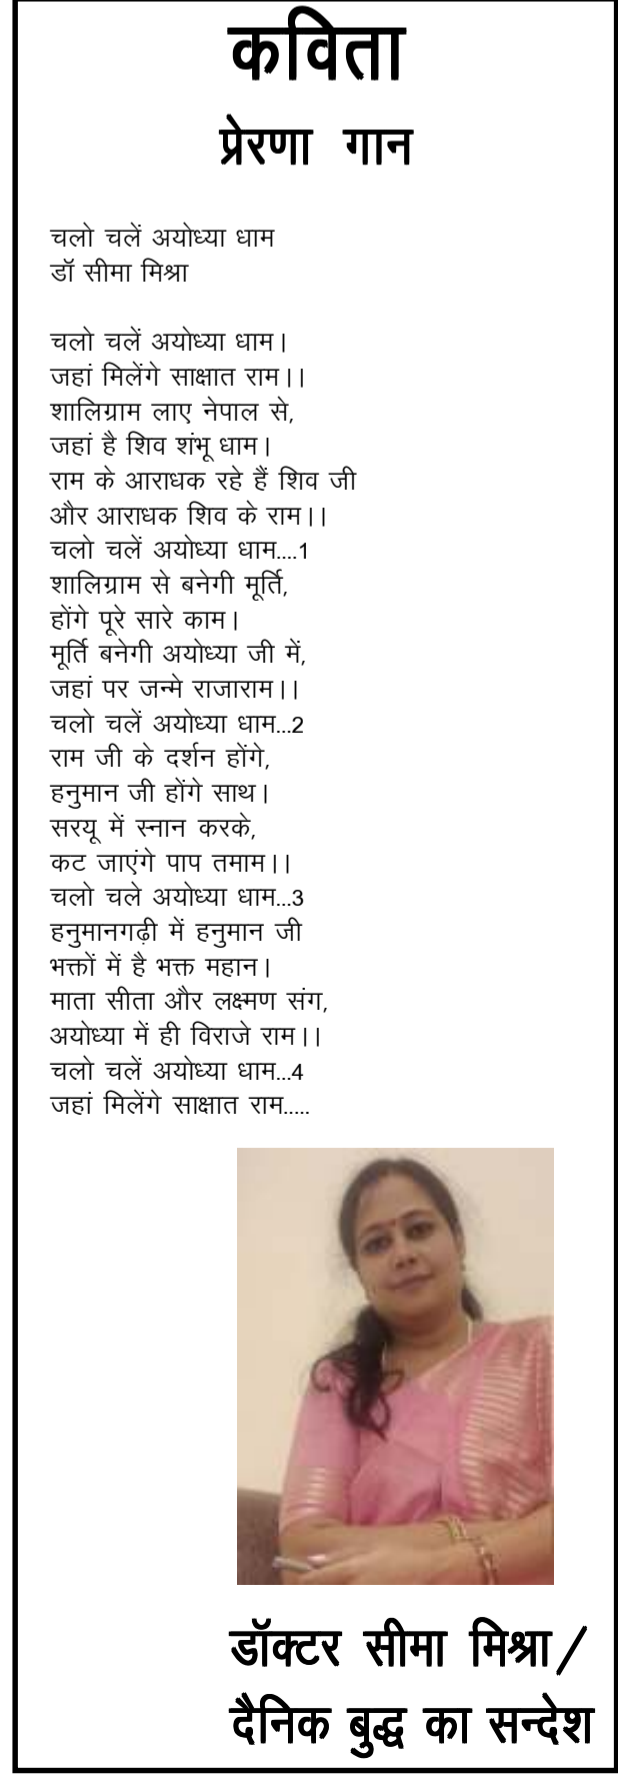 कविता
प्रेरणा गान
चलो चलें अयोध्या धाम
डॉ सीमा मिश्रा
चलो चलें अयोध्या धाम।
जहां मिलेंगे साक्षात राम।।
शालिग्राम लाए नेपाल से,
जहां है शिव शंभू धाम।
राम के आराधक रहे हैं शिव जी
और आराधक शिव के राम।।
चलो चलें अयोध्या धाम....1
शालिग्राम से बनेगी मूर्ति,
होंगे पूरे सारे काम।
मूर्ति बनेगी अयोध्या जी में,
जहां पर जन्मे राजाराम।।
चलो चलें अयोध्या धाम...2
राम जी के दर्शन होंगे,
हनुमान जी होंगे साथ।
सरयू में स्नान करके,
कट जाएंगे पाप तमाम।।
चलो चले अयोध्या धाम...3
हनुमानगढ़ी में हनुमान जी
भक्तों में है भक्त महान।
माता सीता और लक्ष्मण संग,
अयोध्या में ही विराजे राम।।
चलो चलें अयोध्या धाम...4
जहां मिलेंगे साक्षात राम.....
डॉक्टर सीमा मिश्रा/
दैनिक बुद्ध का सन्देश